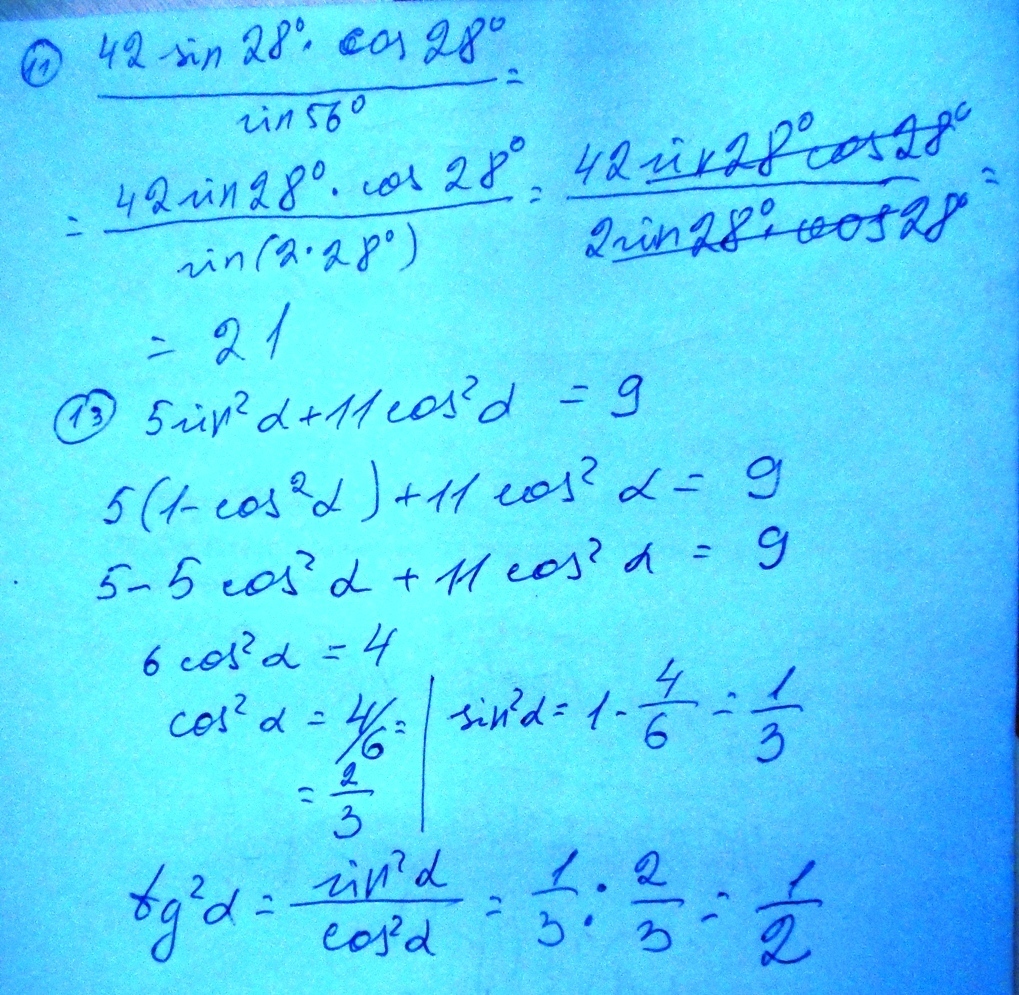 11 42 sin 28° · cos 28° / sin 56° =
= 42 sin 28° · cos 28° / sin(2·28°) = 42 sin 28° cos 28° / 2 sin 28° · cos 28° =
= 21
13 5 sin² α + 11 cos² α = 9
5(1 - cos² α) + 11 cos² α = 9
5 - 5 cos² α + 11 cos² α = 9
6 cos² α = 4
cos² α = 4/6 = | sin² α = 1 - 4/6 = 1/3
= 2/3
tg² α = sin² α / cos² α = 1/3 : 2/3 = 1/2